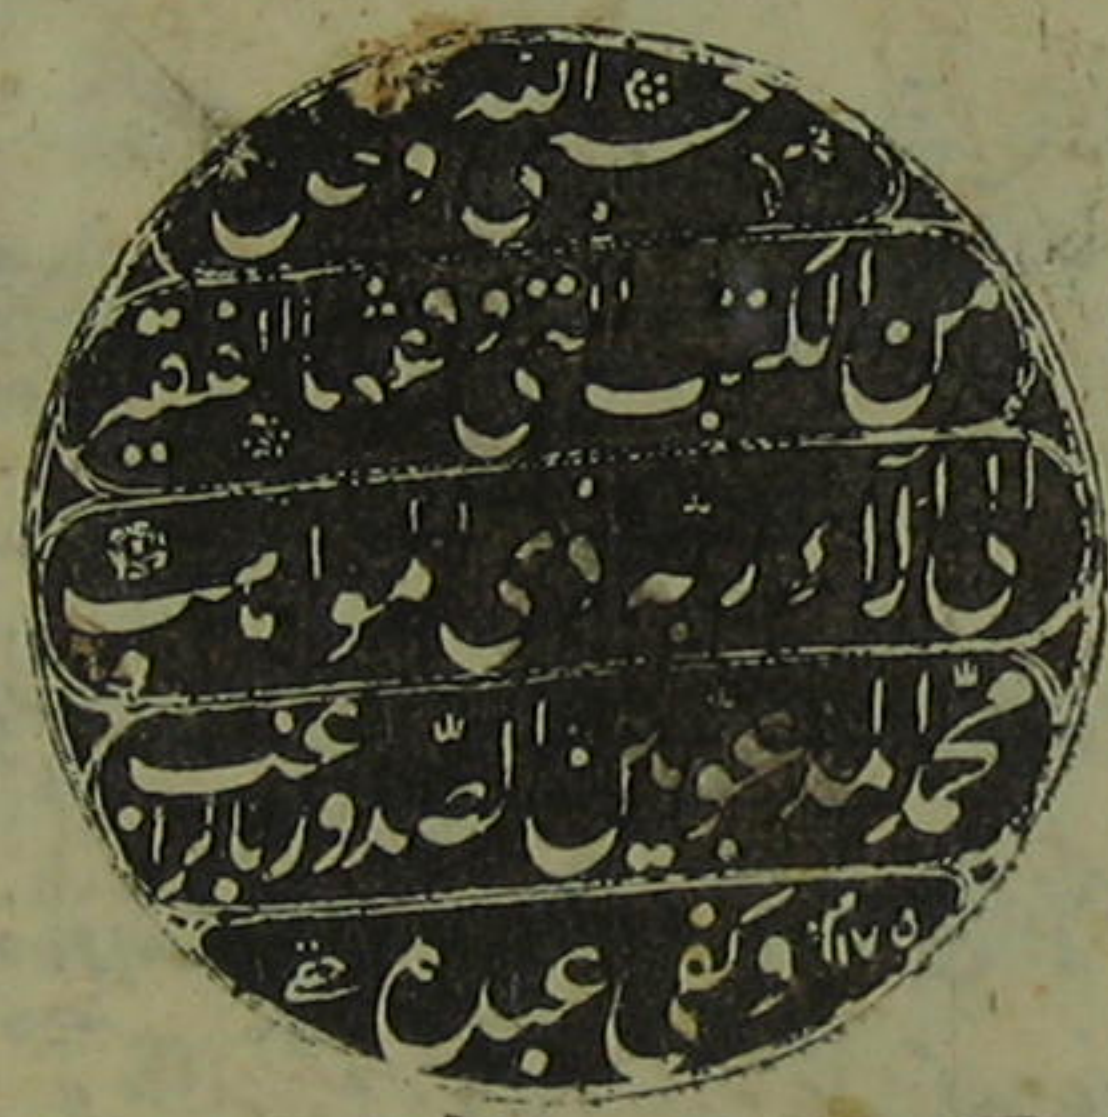 حسبي الله
من الكتب التي وقفها الفقير
الى آلاء ربه ذي المواهب
محمّد المدعو بين الصّدور بالراغب
وكفى عبده ١١٧٥